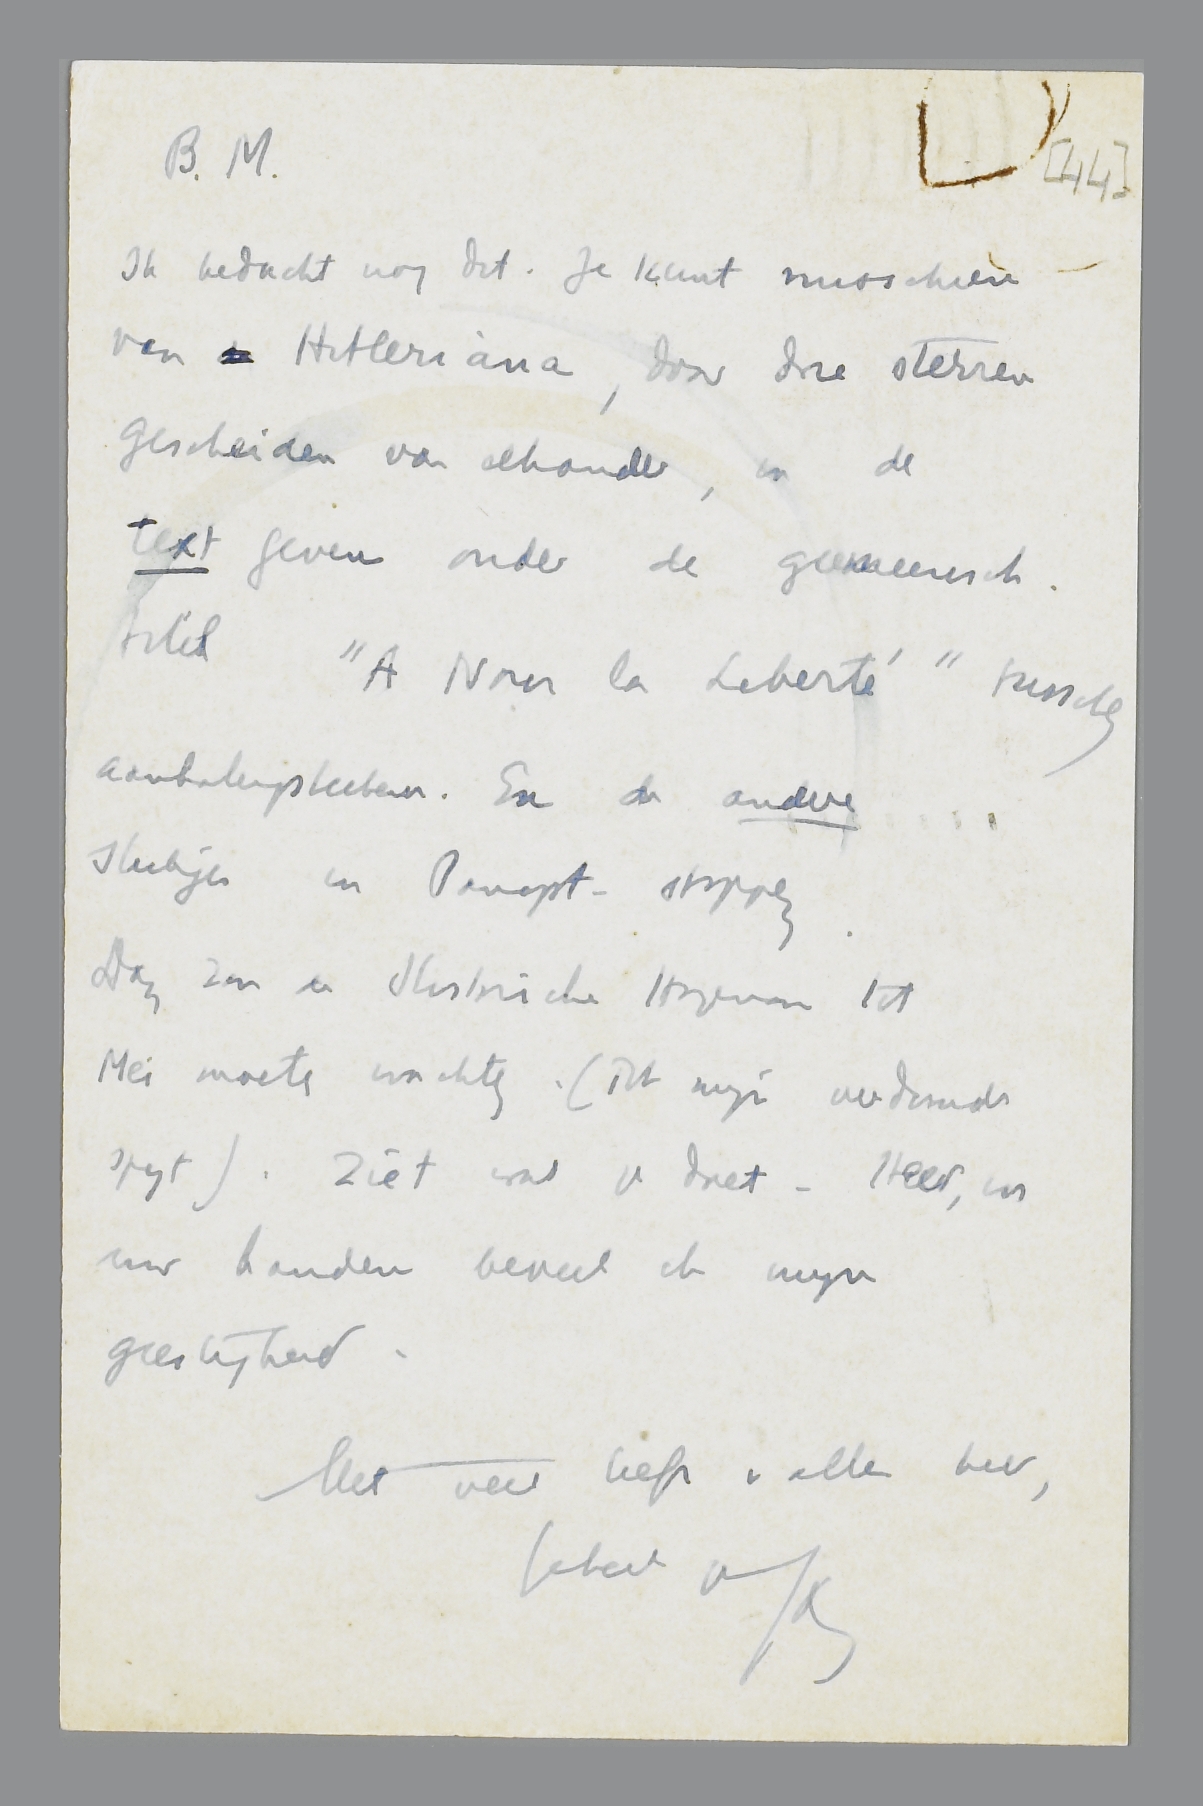 B. M.
[44]
Ik bedacht nog dit. Je kunt misschien
van Hitleriana, door drie sterren
gescheiden van elkander, in de
text geven onder de gemeensch.
titel "A Nous la Liberté" tusschen
aanhalingsteekens. En de andere
stukjes in Panopt. stoppen.
Dan zou de Historische Hoofdman tot
Mei moeten wachten. (Tot mijn
spijt). Ziet wat U doet. Heer, in
uw handen beveel ik mijn
geestigheid.
Met veel liefs v. allen hier,
geheel